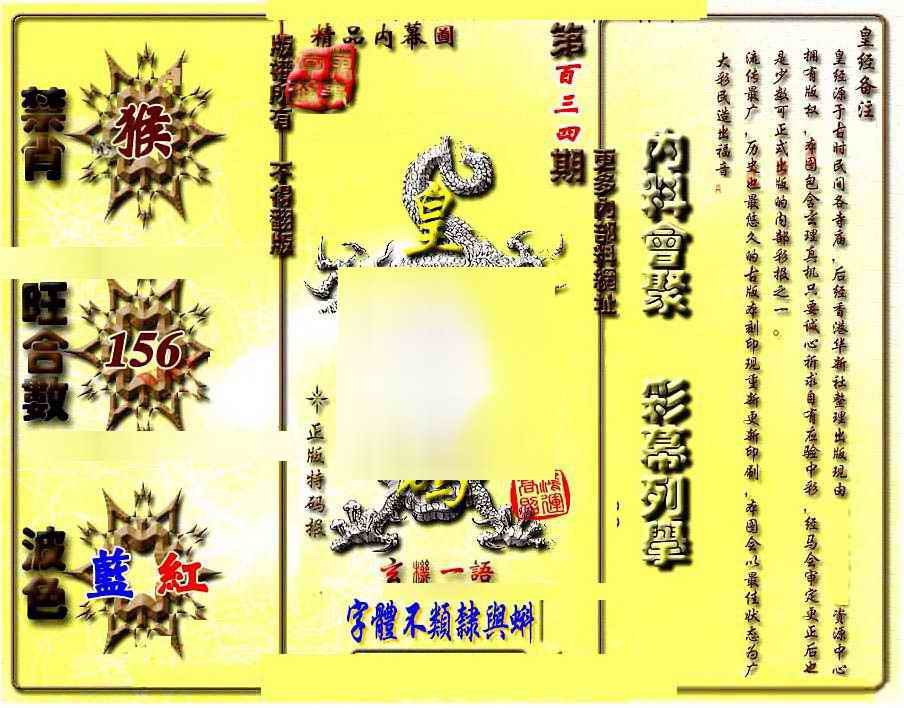 皇经备注
皇经源于古时民间各寺庙，后经香港华新社整理出版现由
资源中心
拥有版权，本图包含玄理真机只要诚心祈求自有应验中彩，经马会审定更正后也
是少数可正式出版的内部彩报之一。
流传最广，历史也最悠久的古版本刻印现重新更新印刷，本图会以最佳状态为广
大彩民造出福音
內料會聚
彩幕列舉
更多內部料網址
第百三四期
精品內幕圖
皇
正版特码报
鴻運
玄機一語
字體不類隸與蝌
版權所有 不得翻版
禁肖
猴
旺合數
156
波色
藍 紅